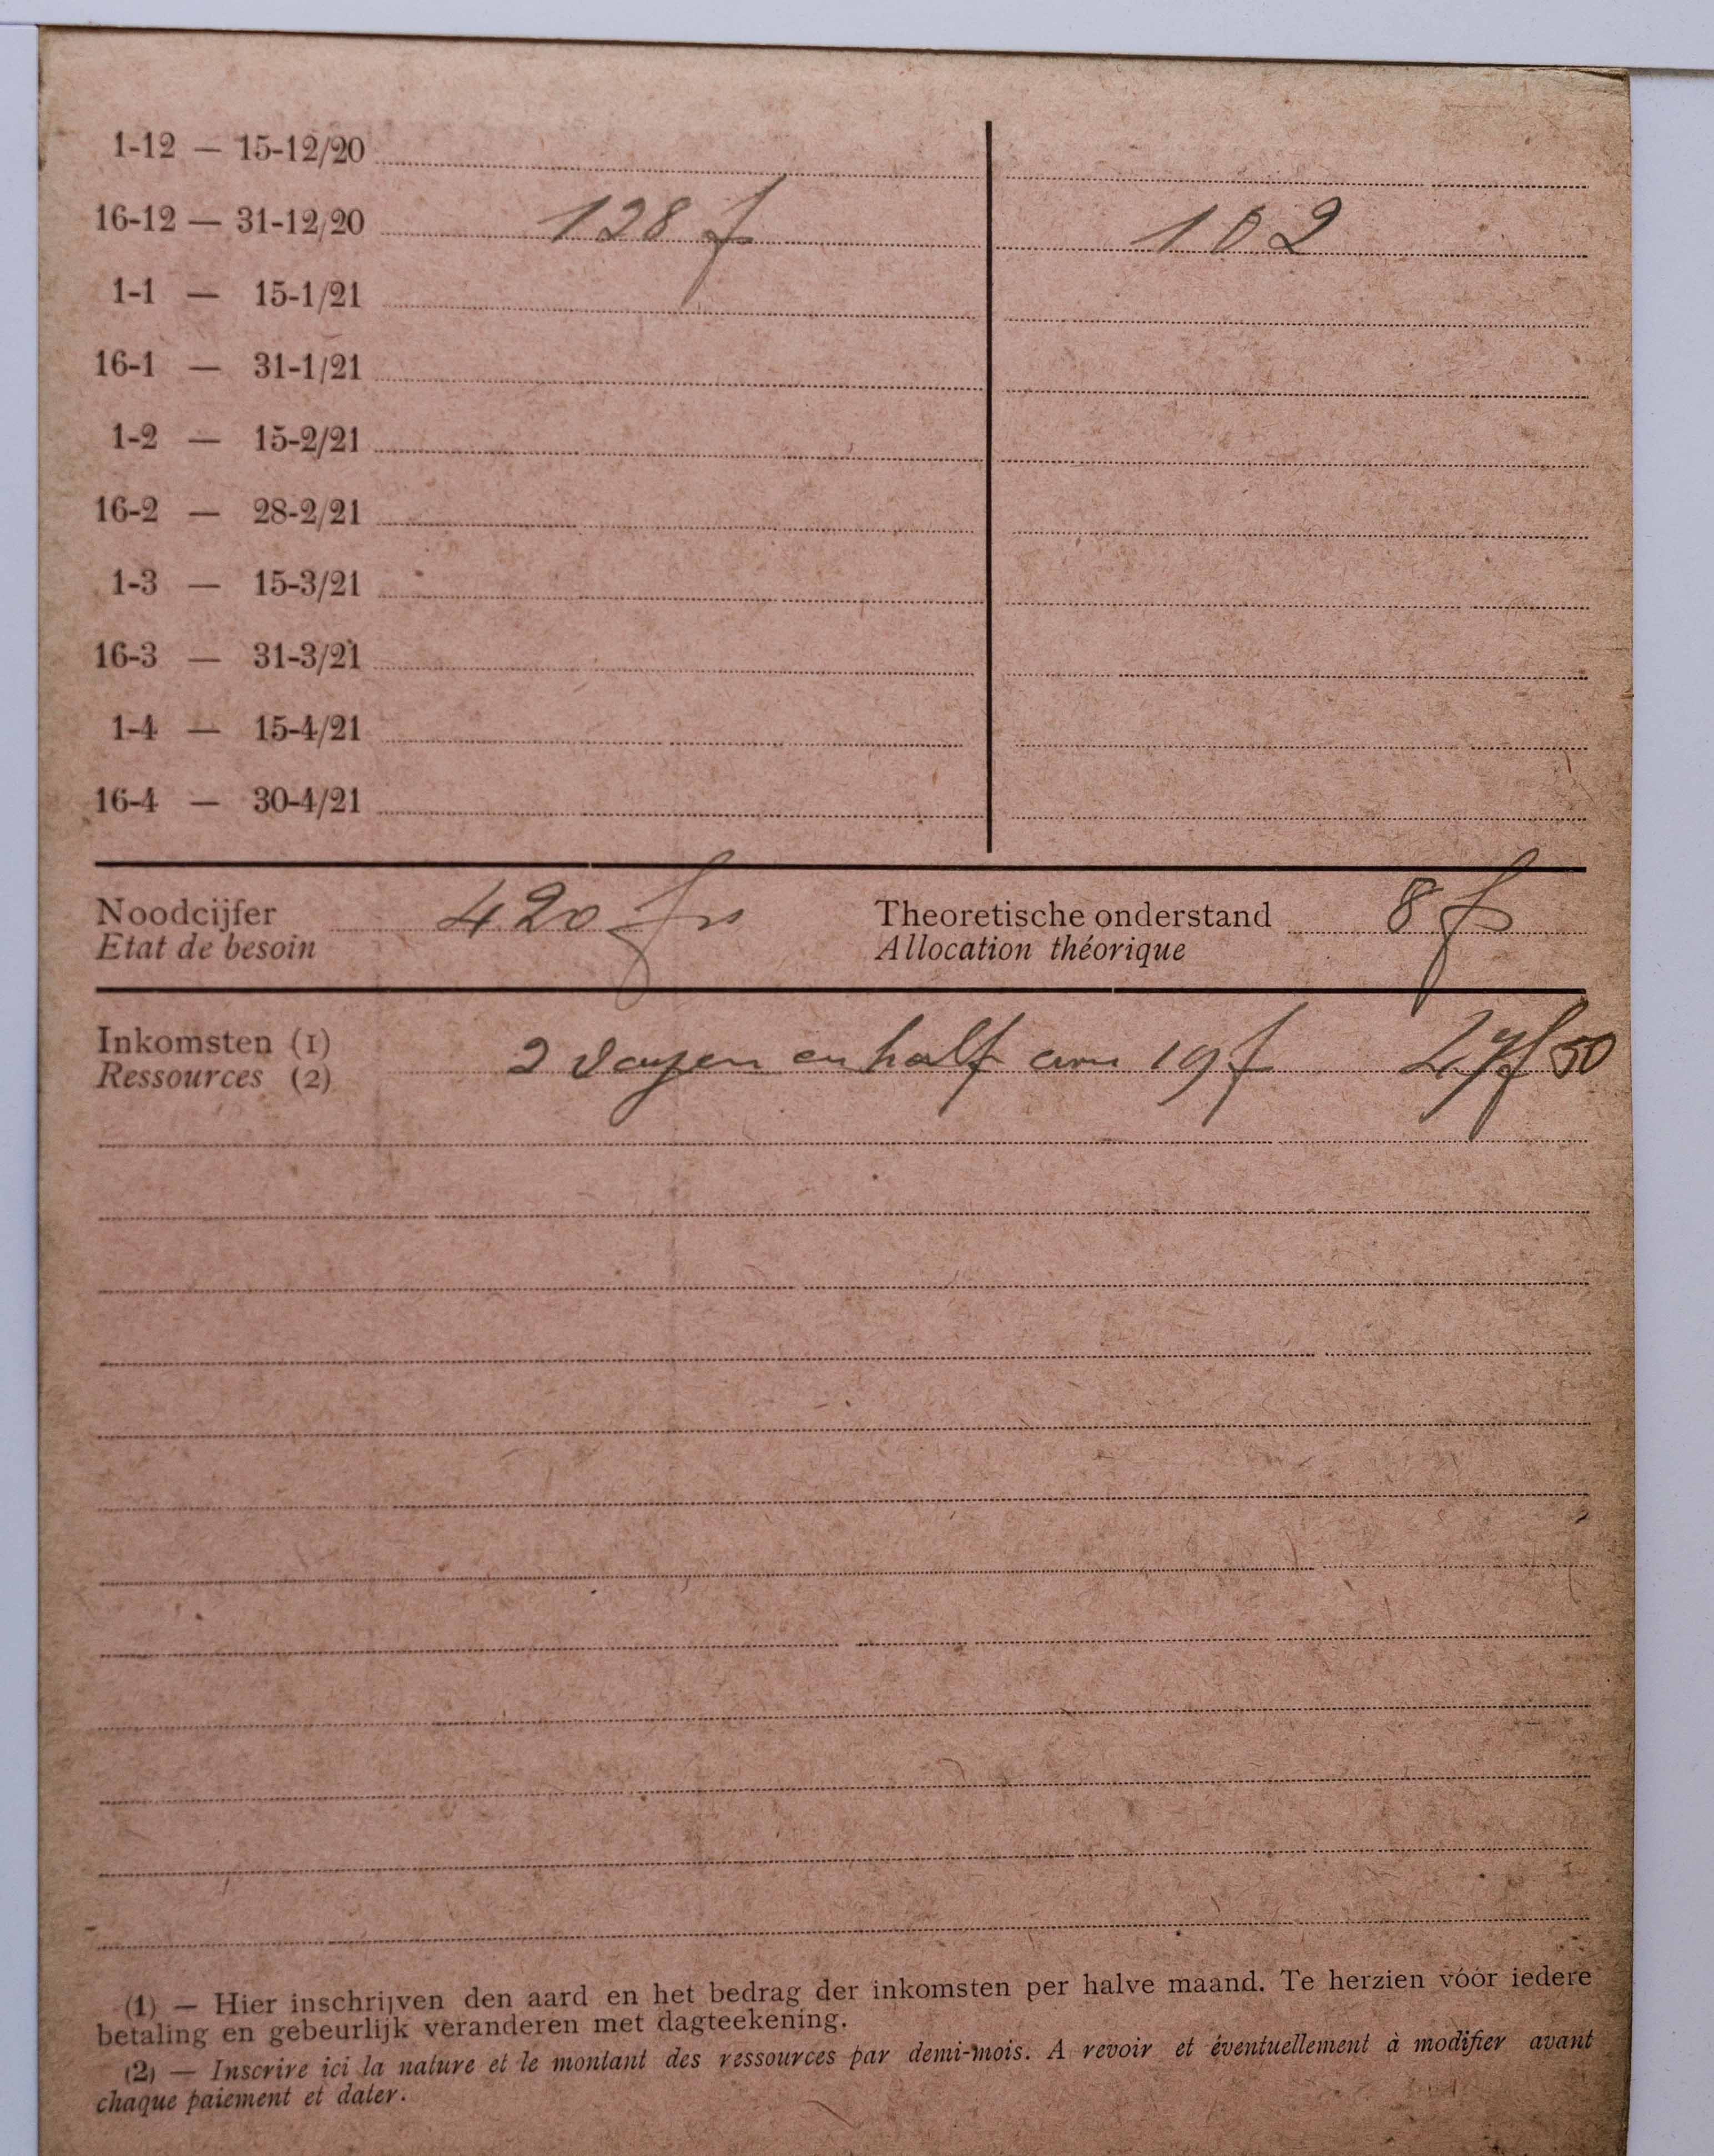 1-12 — 15-12/20
16-12 — 31-12/20 128 f 102
1-1 — 15-1/21
16-1 — 31-1/21
1-2 — 15-2/21
16-2 — 28-2/21
1-3 — 15-3/21
16-3 — 31-3/21
1-4 — 15-4/21
16-4 — 30-4/21
Noodcijfer 420 frs Theoretische onderstand 8 f
Etat de besoin Allocation théorique
Inkomsten (1) 2 dagen en half 19 f 47f 50
Ressources (2)
(1) — Hier inschrijven den aard en het bedrag der inkomsten per halve maand. Te herzien vóór iedere
betaling en gebeurlijk veranderen met dagteekening.
(2) — Inscrire ici la nature et le montant des ressources par demi-mois. A revoir et éventuellement à modifier avant
chaque paiement et dater.